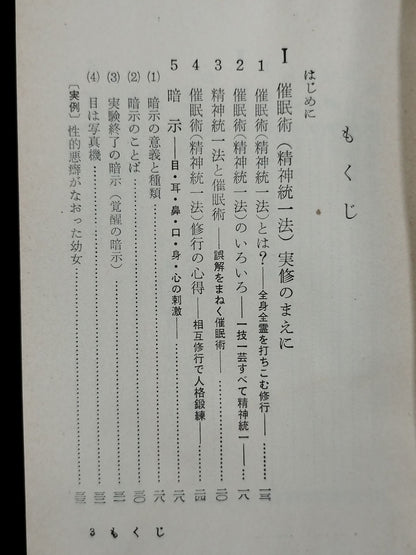 もくじ
はじめに
Ⅰ 催眠術(精神統一法)実修のまえに
1 催眠術(精神統一法)とは?――全身全霊を打ちこむ修行――……一三
2 催眠術(精神統一法)のいろいろ――一技一芸すべて精神統一――……一八
3 精神統一法と催眠術――誤解をまねく催眠術――……二〇
4 催眠術(精神統一法)修行の心得――相互修行で人格鍛練――……二四
5 暗示――目・耳・鼻・口・身・心の刺激――……二八
(1) 暗示の意義と種類……二八
(2) 暗示のことば……三〇
(3) 実験終了の暗示(覚醒の暗示)……三一
(4) 目は写真機……三二
〔実例〕性的悪癖がなおった幼女……
3 もくじ